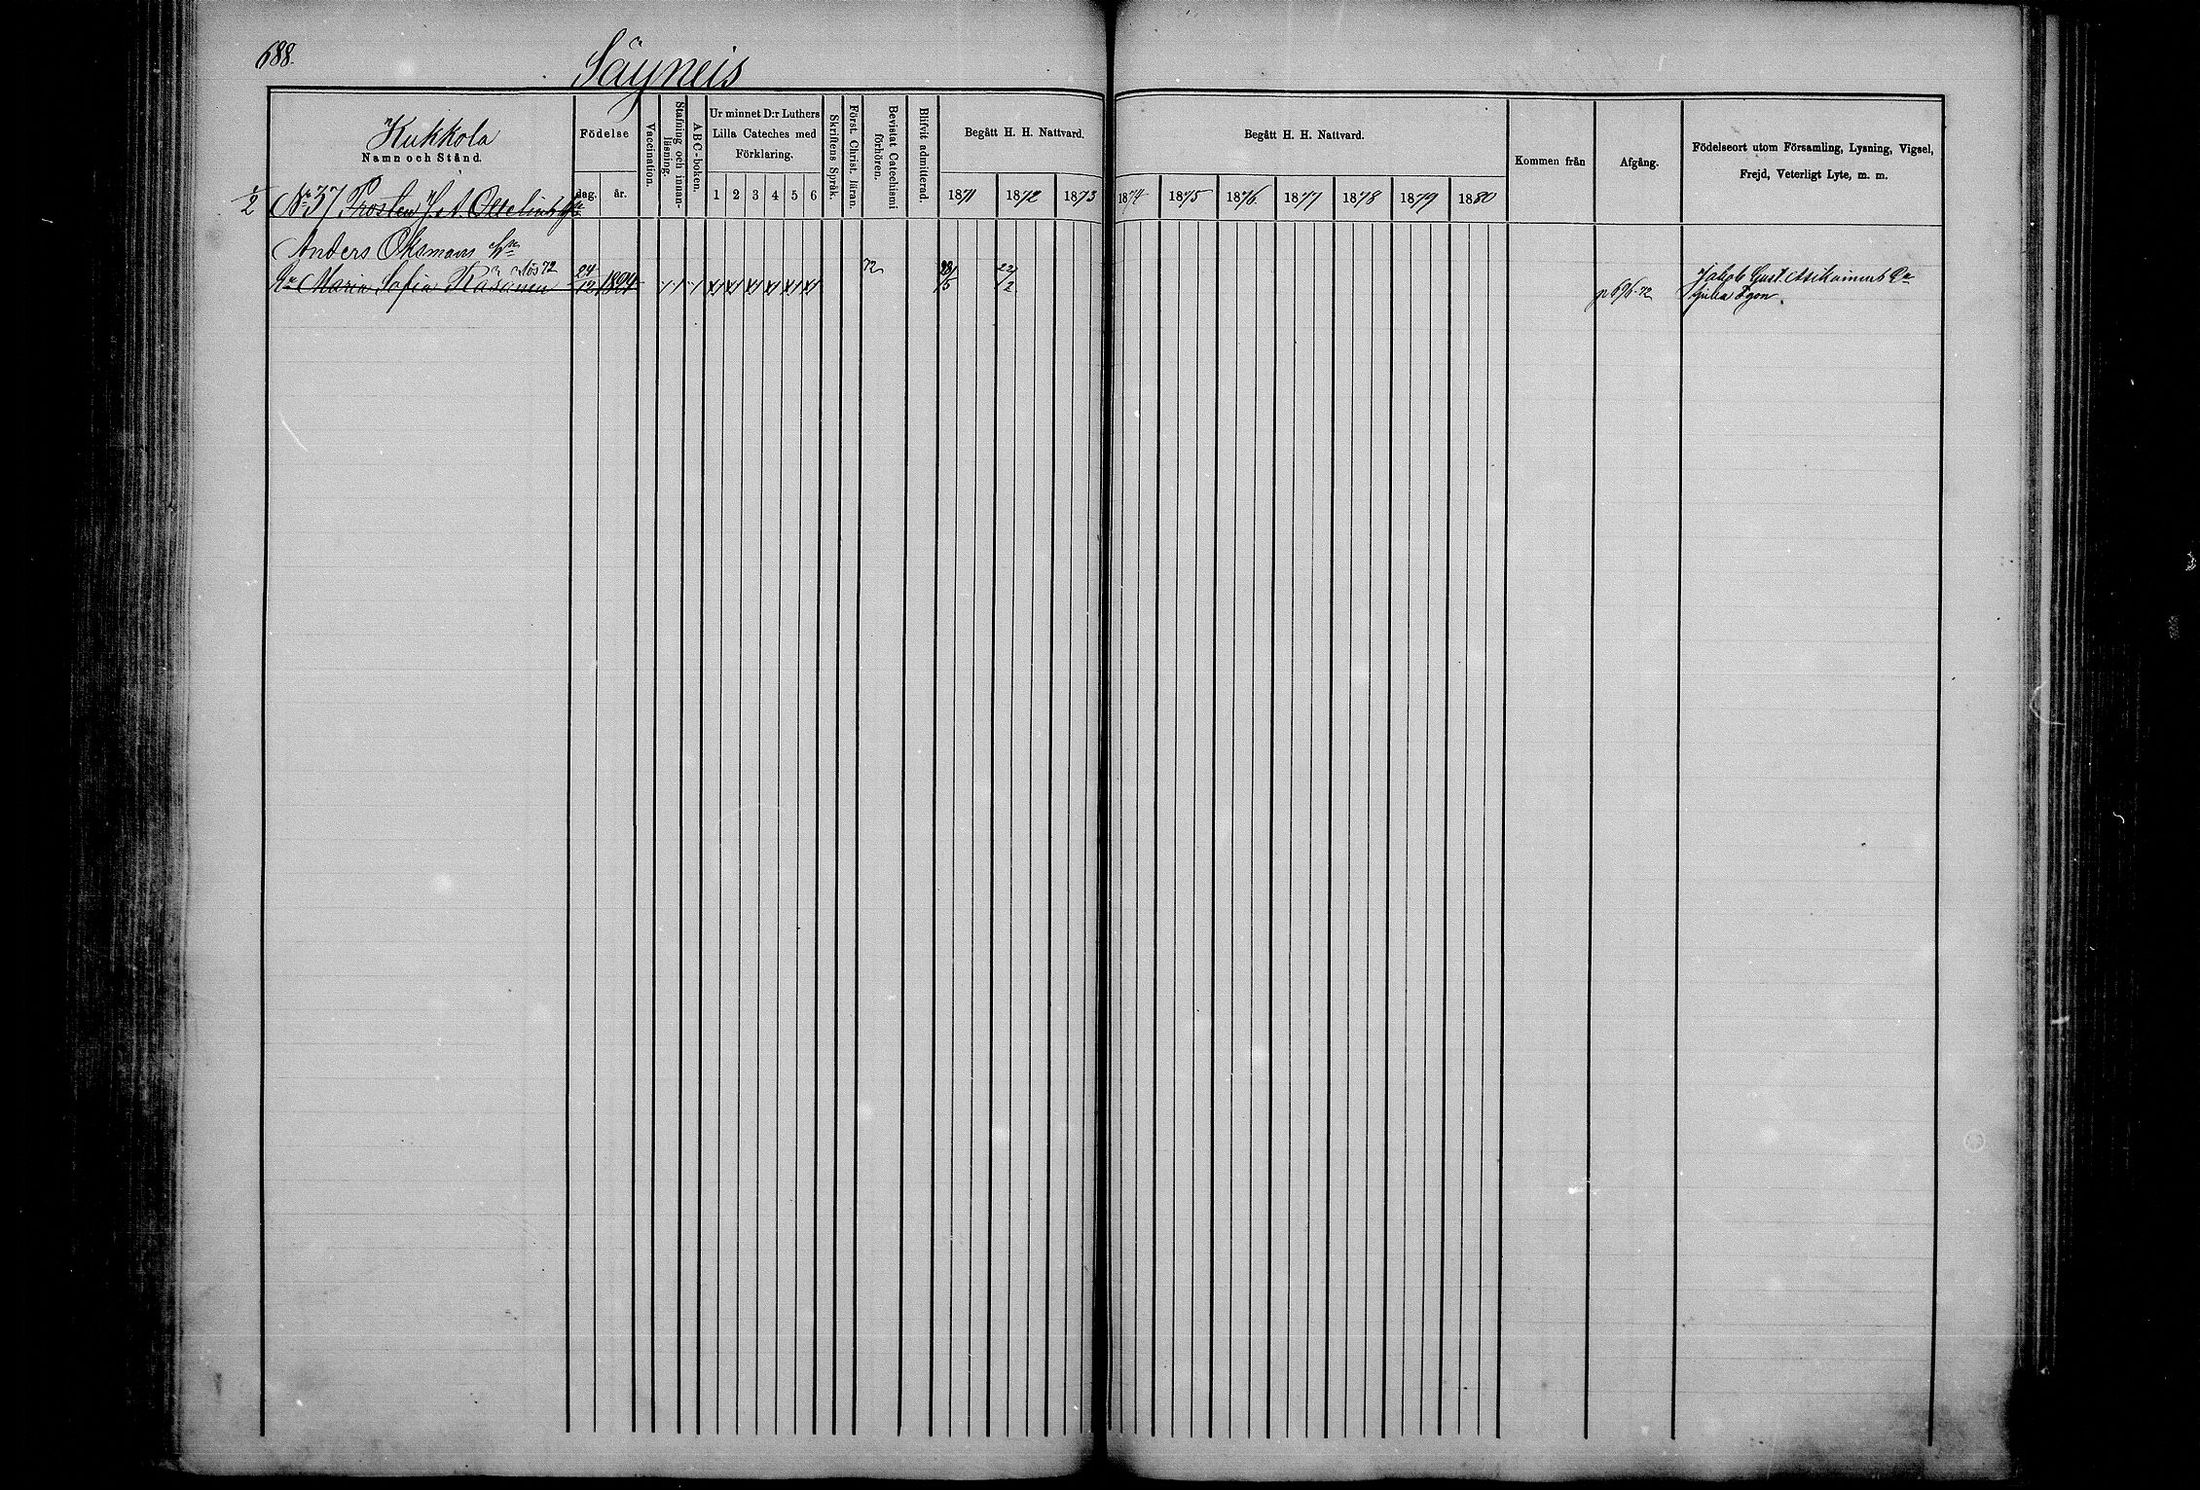 688.
Säyneis
Kukkola
Namn och Stånd.
Födelse
dag. år.
Vaccination.
Stafning och innan-läsning.
ABC-boken.
Ur minnet D:r Luthers
Lilla Cateches med
Förklaring.
1 2 3 4 5 6
Skriftens Språk.
Först. Christ. läran.
Bevistat Catechismi förhören.
Blifvit admitterad.
Begått H. H. Nattvard.
1871 1872 1873
Begått H. H. Nattvard.
1874 1875 1876 1877 1878 1879 1880
Kommen från
Afgång.
Födelseort utom Församling, Lysning, Vigsel,
Frejd, Veterligt Lyte, m. m.
1/2 No 37 Prosten
Anders Oksmans
Maria Sofia Räsänen 72 24/12 1824 72 28/5 22/2 p 696 72
Jakob Gust.